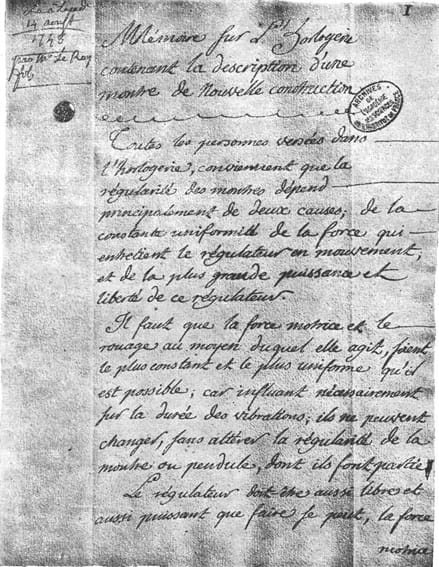 1
14 aoust
1748
Le Roy
Mémoire sur l'Horlogerie
contenant la description d'une
montre de Nouvelle construction
ARCHIVES
DE
L'ACADÉMIE
DES SCIENCES
INSTITUT DE FRANCE
Toutes les personnes versées dans
l'horlogerie, conviennent que la
régularité des montres dépend
principalement de deux causes; de la
constante uniformité de la force qui
entretient le régulateur en mouvement,
et de la plus grande puissance et
liberté de ce régulateur.
Il faut que la force motrice et le
rouage au moyen duquel elle agit, soient
le plus constant et le plus uniforme qu'il
est possible; car influant nécessairement
sur la durée des vibrations; ils ne peuvent
changer, sans altérer la régularité de la
montre ou pendule, dont ils font partie
Le régulateur doit être aussi libre et
aussi puissant que faire se peut, la force
motrice